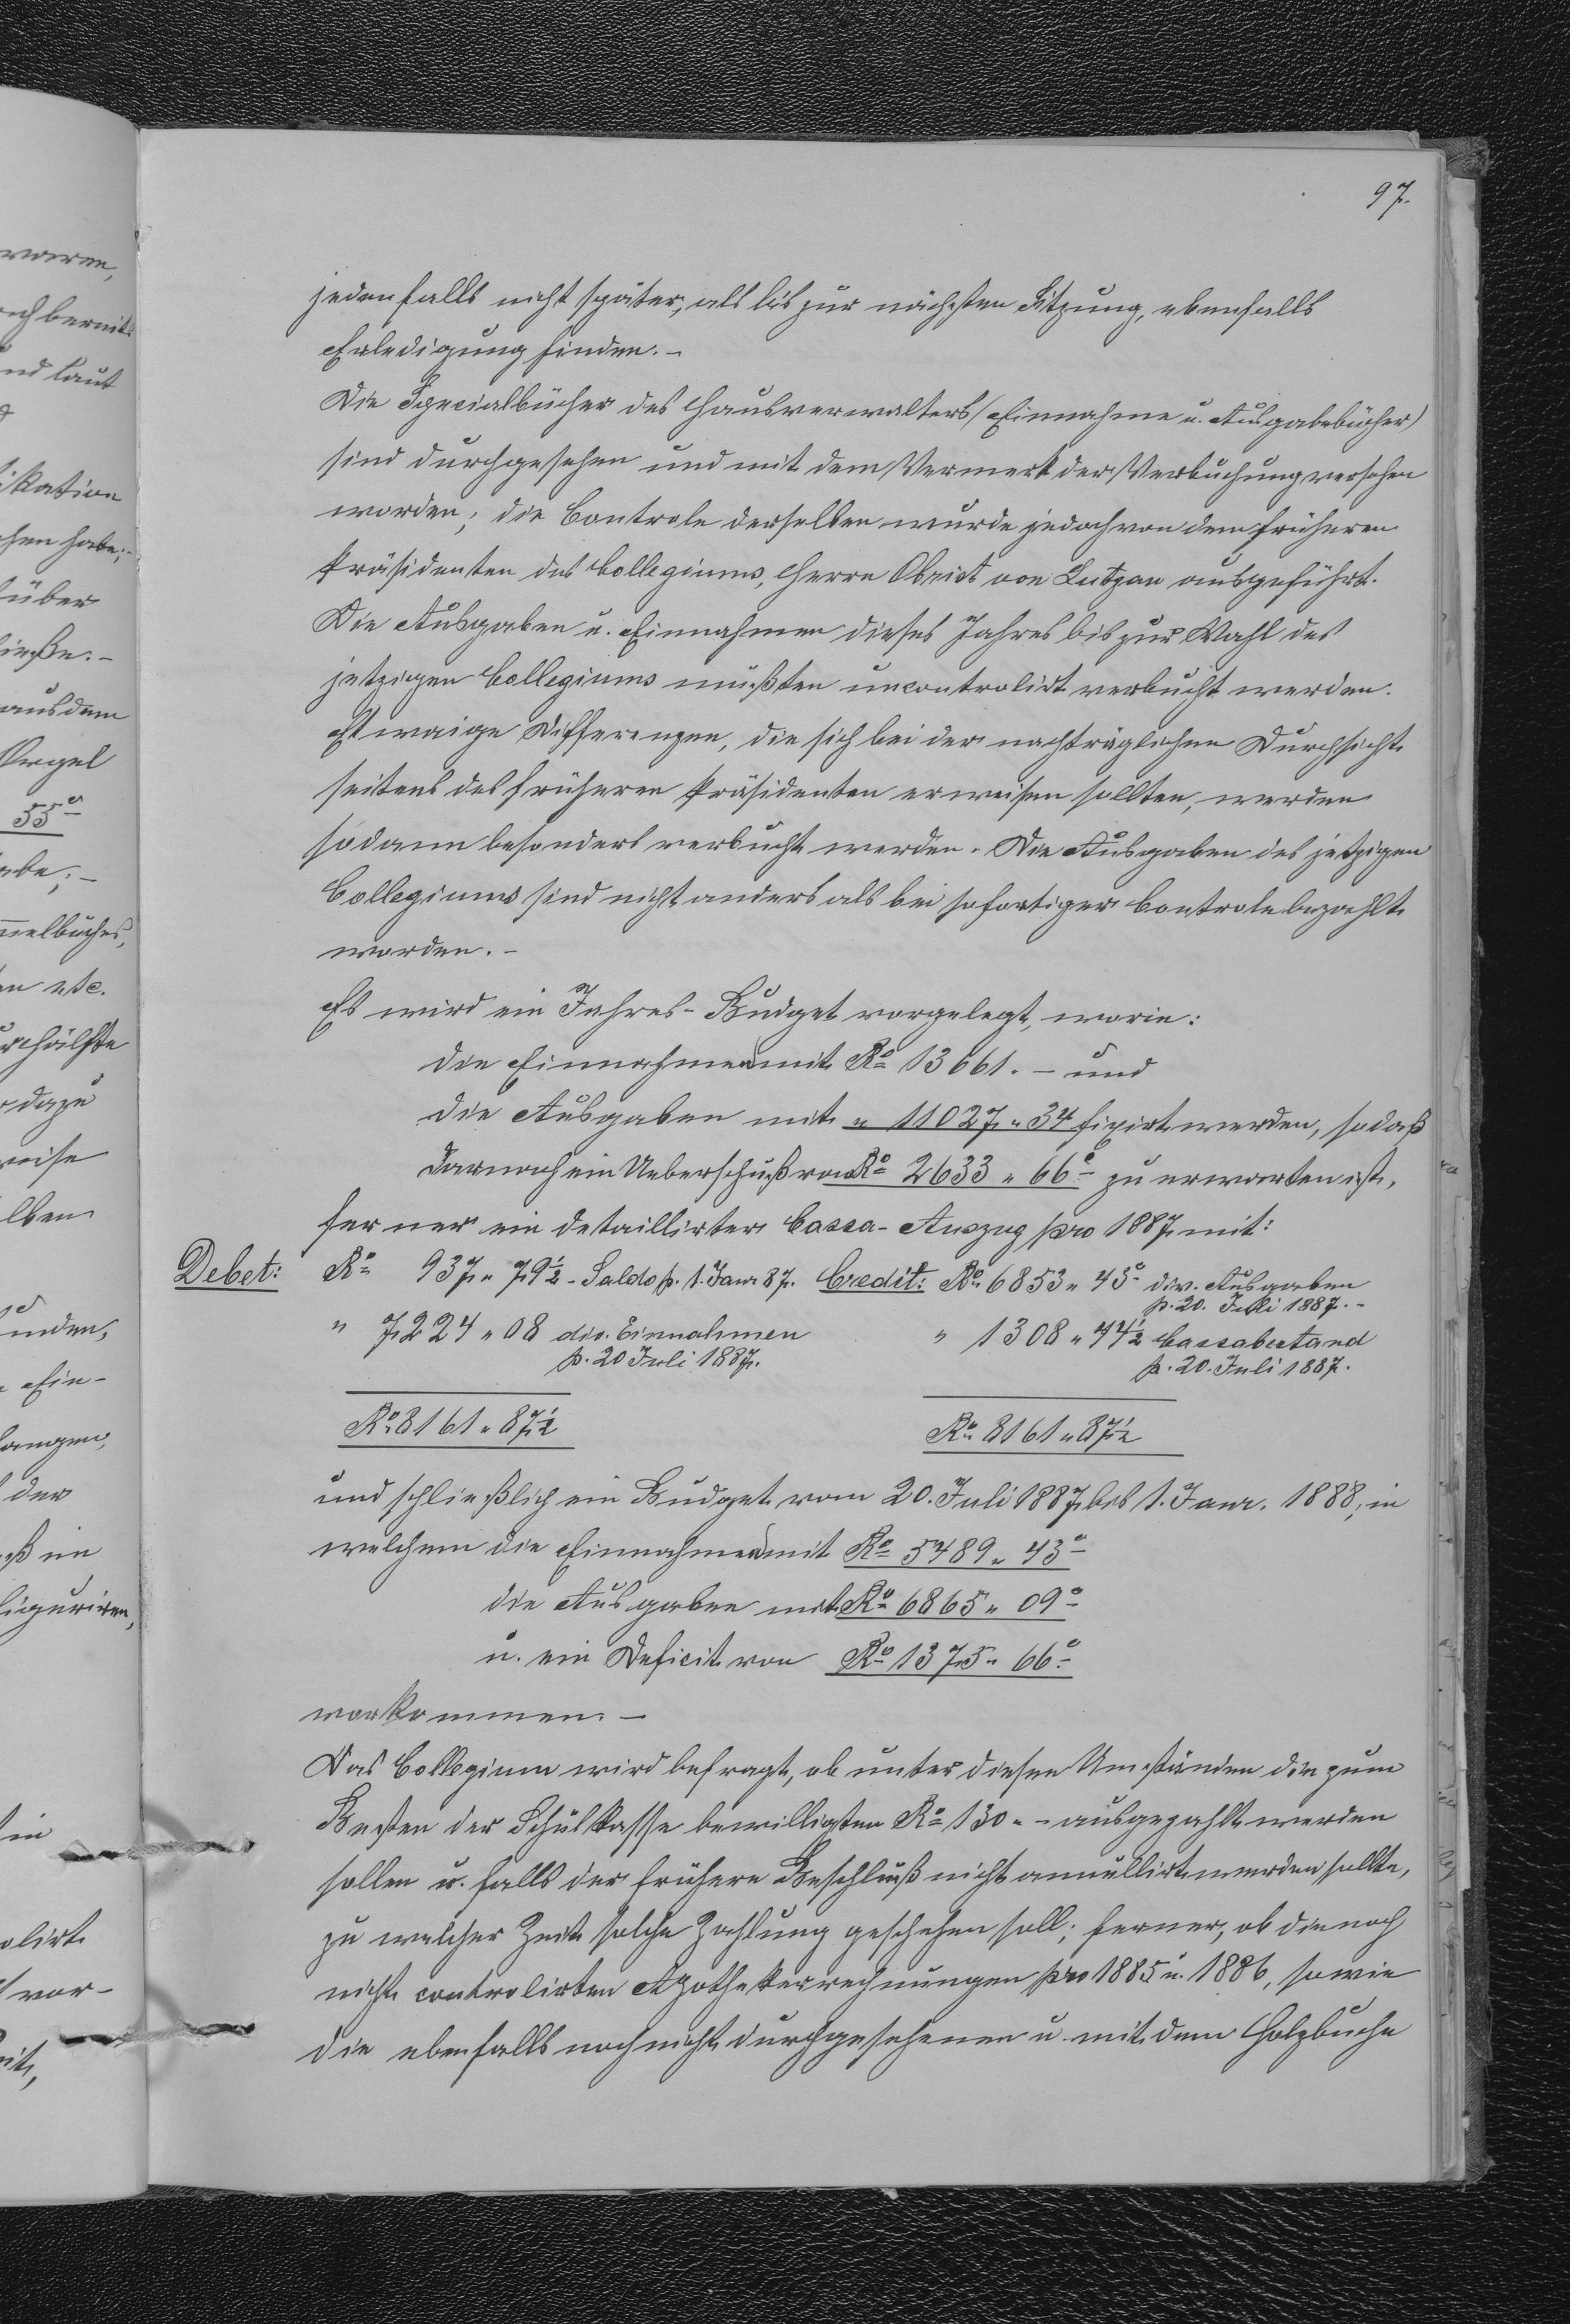 97.
jedenfalls nicht später, als bis zur nächsten Sitzung, ebenfalls
Erledigung finden. –
Die Specialbücher des Hausverwalters (Einnahme u. Ausgabebücher)
sind durchgesehen und mit dem Vermerk der Verbuchung versehen
worden; die Controle derselben wurde jedoch von dem früheren
Präsidenten des Collegiums, Herrn Obrist von Lutzau ausgeführt.
Die Ausgaben u. Einnahmen dieses Jahres bis zur Wahl des
jetzigen Collegiums mußten uncontrolirt verbucht werden.
Etwaige Differenzen, die sich bei der nachträglichen Durchsicht
seitens des früheren Präsidenten erweisen sollten, werden
sodann besonders verbucht werden. Die Ausgaben des jetzigen
Collegiums sind nicht anders als bei sofortiger Controle bezahlt
worden. –
Es wird ein Jahres-Budget vorgelegt, worin:
die Einnahmen mit Ro 13661. – und
die Ausgaben mit „ 11027 „ 34 fixirt werden, sodaß
darnach ein Ueberschuß von Ro 2633 „ 66c zu erwarten ist,
ferner ein detaillirter Cassa-Auszug pro 1887 mit:
Debet: Ro 937 „ 79½ Saldo p. 1. Janr 87. Credit: Ro 6853 „ 43c div. Ausgaben
p. 20. Juli 1887. –
„ 7224 „ 08 div. Einnahmen „ 1308 „ 44½ Cassabestand
p. 20 Juli 1887. p. 20. Juli 1887.
Ro 8161 „ 87½ Ro 8161 „ 87½
und schließlich ein Budget vom 20. Juli 1887 bis 1. Janr. 1888, in
welchem die Einnahmen mit Ro 5489 „ 43c
die Ausgaben mit Ro 6865 „ 09c
u. ein Deficit von Ro 1375 „ 66c
vorkommen. –
Das Collegium wird befragt, ob unter diesen Umständen die zum
Besten der Schulkasse bewilligten Ro 130 „ – ausgezahlt werden
sollen u. falls der frühere Beschluß nicht annullirt werden sollte,
zu welcher Zeit solche Zahlung geschehen soll; ferner, ob die noch
nicht controlirten Apothekerrechnungen pro 1885 u. 1886, sowie
die ebenfalls noch nicht durchgesehenen u. mit dem Holzbuche